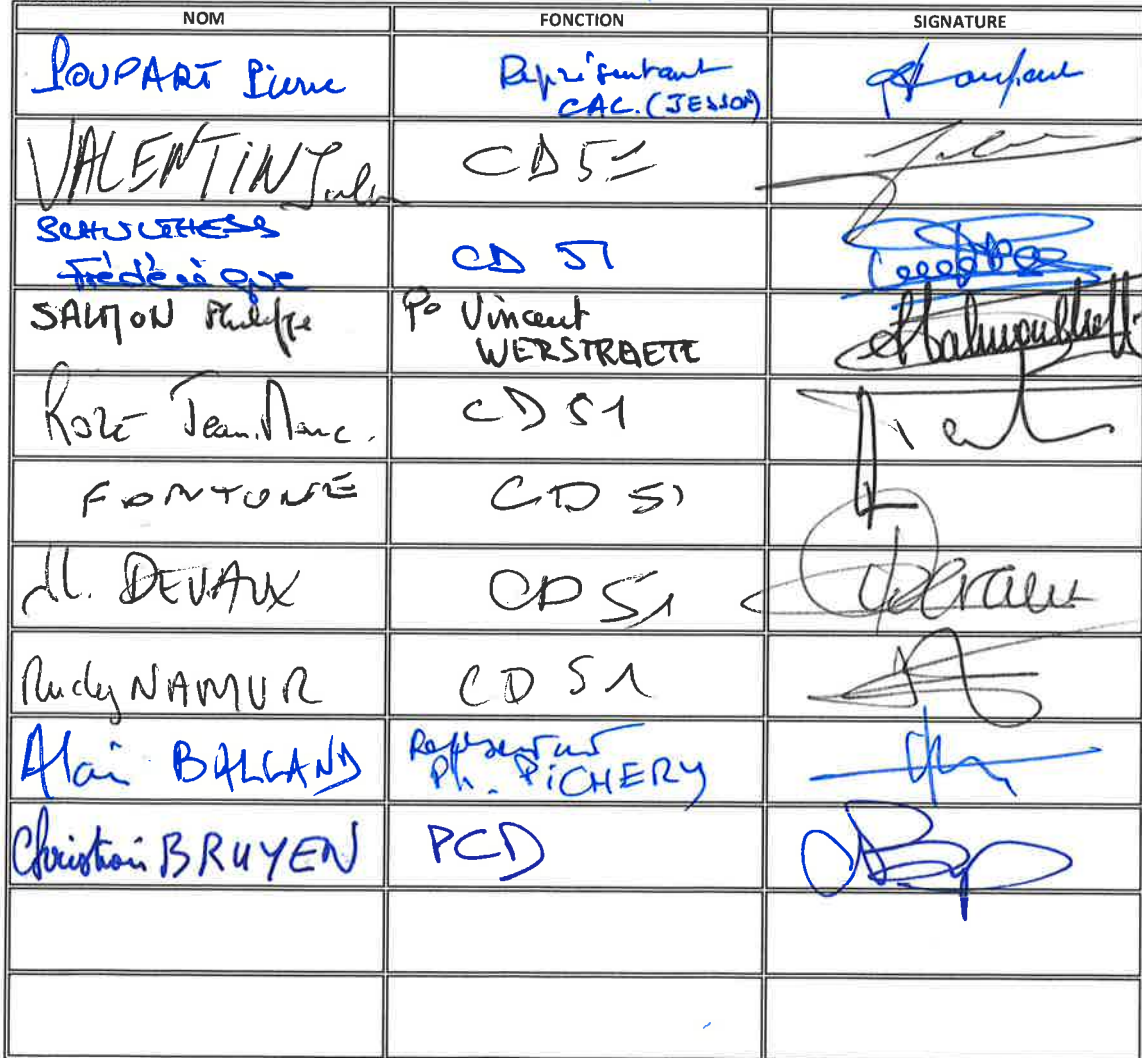 NOM FONCTION SIGNATURE
POUPART Pierre Représentant
CAC. (JESSON)
VALENTIN Julien CD 51
SCHULTHESS
Frédérique CD 51
SALMON Philippe Po Vincent
WERSTRAETE
ROZE Jean.Marc. CD 51
CD 51
M. DEVAUX CD 51
Rudy NAMUR CD 51
Alain BALLAND Représentant
Ph. PICHERY
Christian BRUYEN PCD